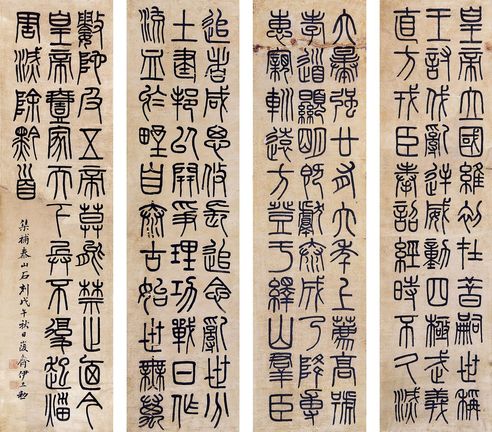 皇帝立國維初在昔嗣世稱
王討伐亂逆威動四極武義
直方戎臣奉詔經時不久滅
六暴強廿有六年上薦高號
孝道顯明既獻泰成乃降專
惠親巡遠方登于繹山群臣
從者咸思攸長追念亂世分
土建邦以開爭理功戰日作
流血於野自泰古始世無萬
數陀及五帝莫能禁止廼今
皇帝壹家天下兵不復起災
害滅除黔首
補泰山石刻戊午秋日